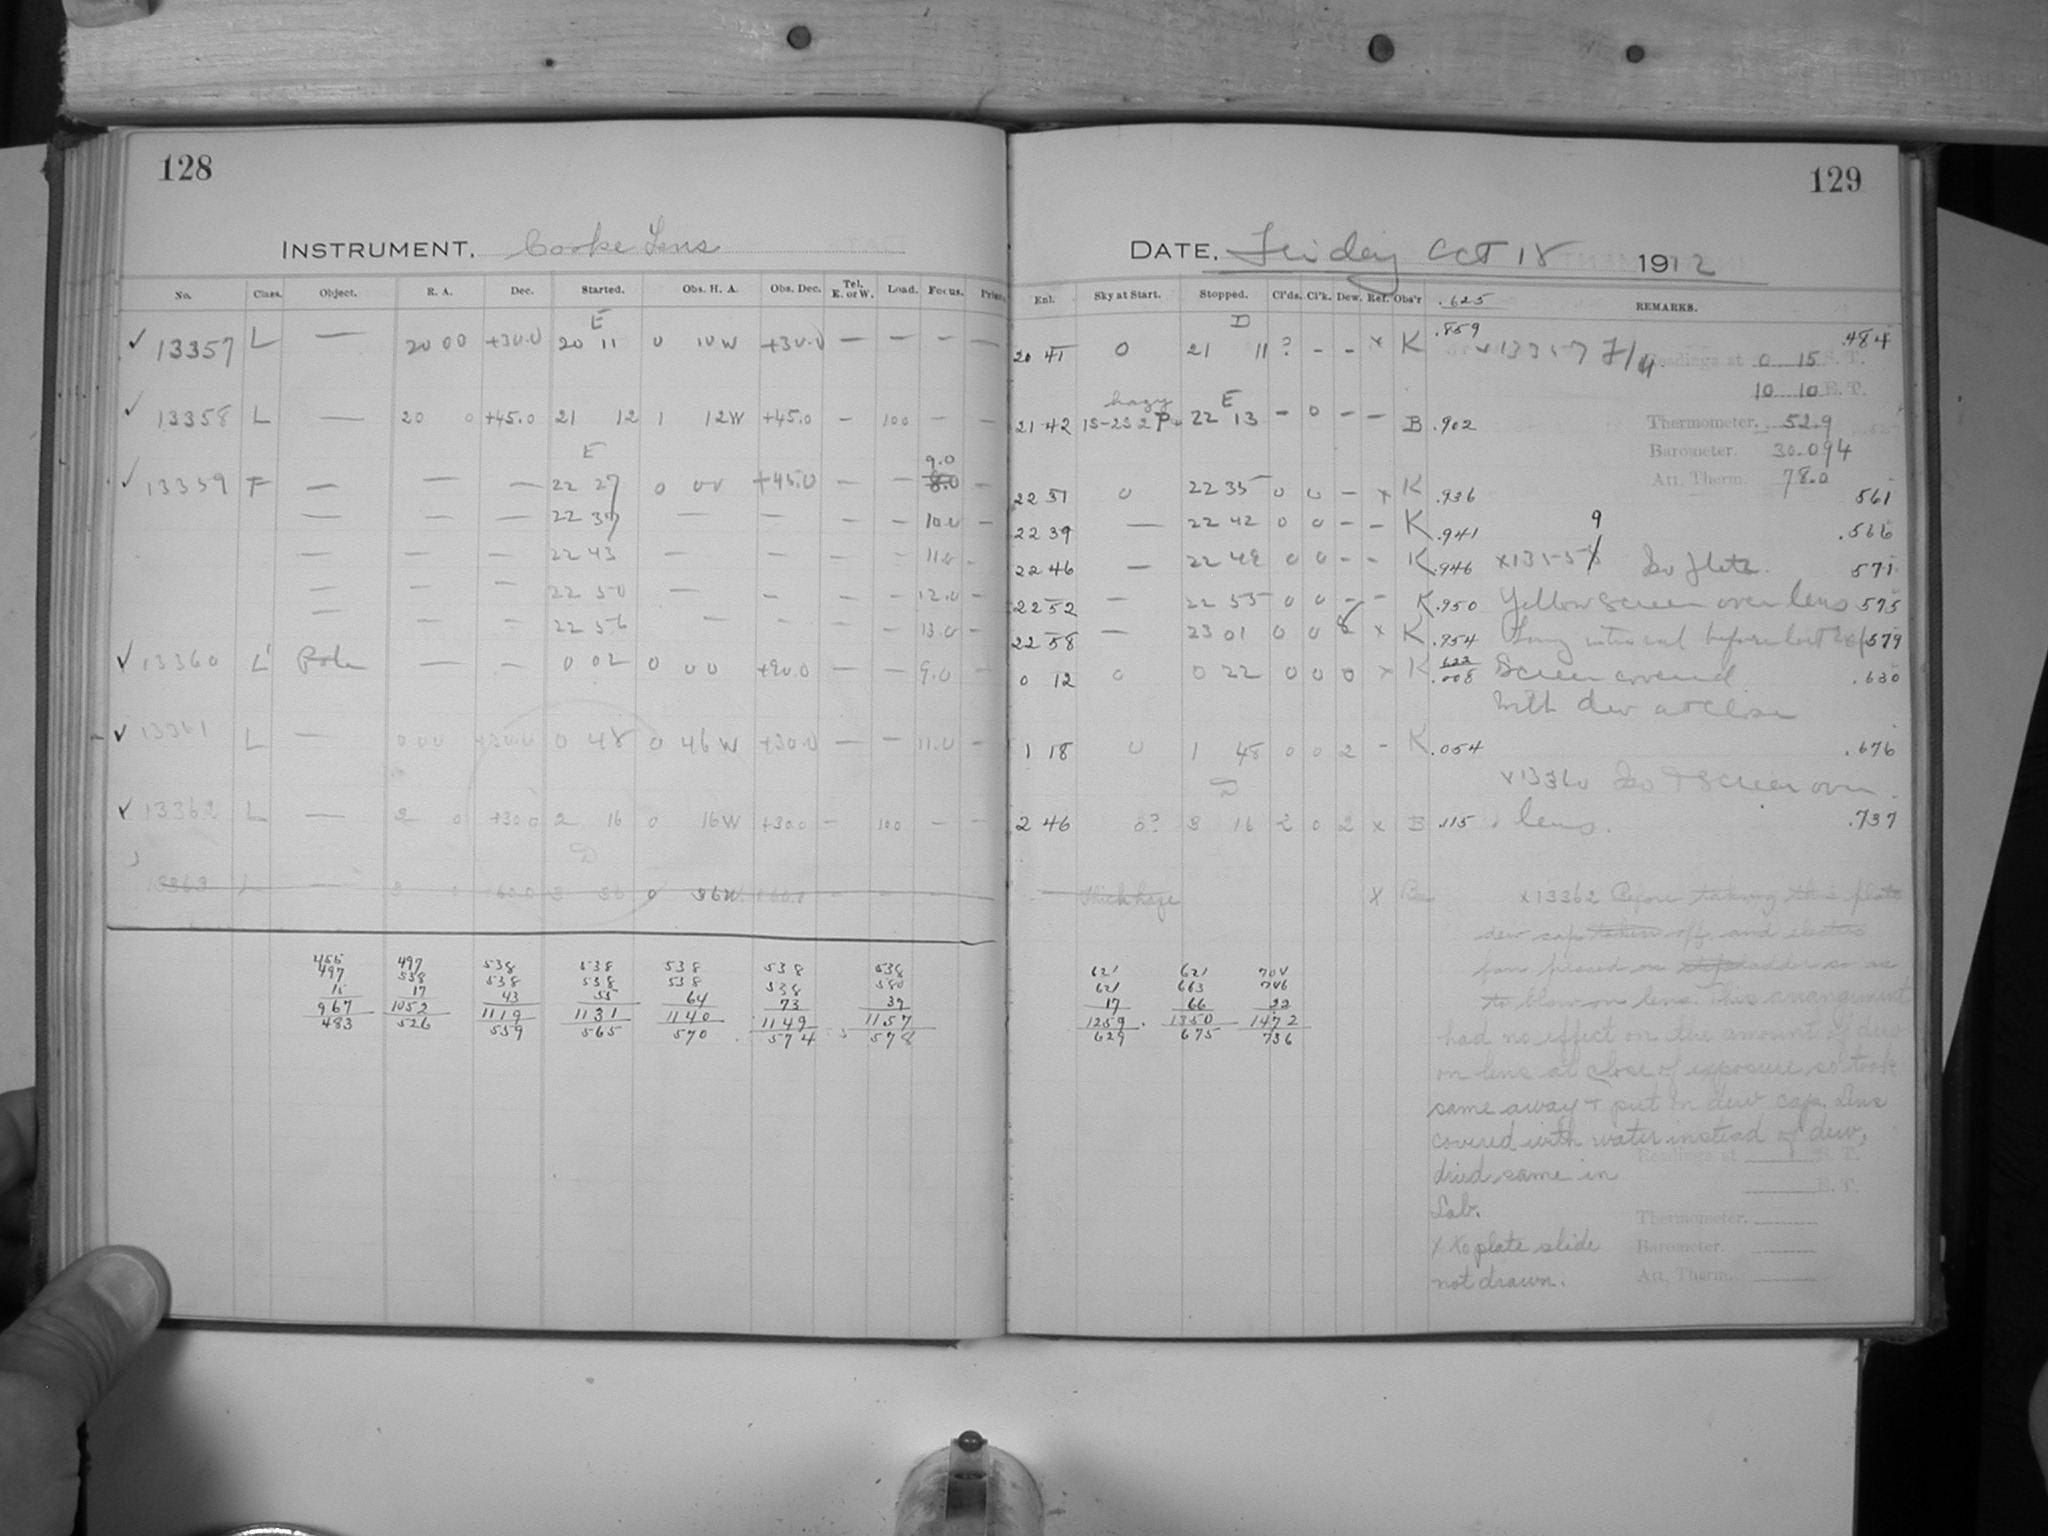 128
INSTRUMENT. Cooke Lens
No. Class. Object. R. A. Dec. Started. Obs. H. A. Obs. Dec. Tel. E. or W. Load. Focus. Prism
E
✓ 13357 L — 20 00 +30.0 20 11 0 10W +30.0 — — — —
✓ 13358 L — 20 0 +45.0 21 12 1 12W +45.0 — 100 — —
E
9.0
✓ 13359 F — — — 22 27 0 00 +45.0 — — 8.0 —
— — — 22 37 — — — — 10.0 —
— — — 22 43 — — — — 11.0 —
— — — 22 50 — — — — 12.0 —
— — — 22 56 — — — — 13.0 —
✓ 13360 L Pole — — 0 02 0 00 +90.0 — — 9.0 —
✓ 13361 L — 0 00 +30.0 0 48 0 46W +30.0 — — 11.0 —
✓ 13362 L — 2 0 +30.0 2 16 0 16W +30.0 — 100 — —
D
13363 L — 3 0 +60.0 3 36 0 36W +60.0 — — —
455 497 538 538 538 538 538
497 538 538 538 538 538 580
15 17 43 55 64 73 39
967 1052 1119 1131 1140 1149 1157
483 526 559 565 570 574 578
129
DATE. Friday Oct 18 1912
Enl. Sky at Start. Stopped. Cl'ds. Cl'k. Dew. Ref. Obs'r .625 REMARKS.
D
20 41 0 21 11 ? — — x K .859 x 13357 .484
Readings at 0 15 S. T.
10 10 E. T.
hazy E
21 42 15-25 2 P 22 13 — 0 — — B .902
Thermometer. 52.9
Barometer. 30.094
Att. Therm. 78.0
22 31 0 22 35 0 0 — x K .936 561
22 39 — 22 42 0 0 — — K .941 .566
9
22 46 — 22 49 0 0 — — K .946 x 13358 Iso plate. 571
22 52 — 22 55 0 0 — — K .950 Yellow screen over lens 575
22 58 — 23 01 0 0 x K .954 Long interval before last exp 579
622
0 12 0 0 22 0 0 0 x K .008 Screen covered .630
with dew at close
1 18 0 1 48 0 0 2 — K .054 .676
x 13360 Iso + screen over
D
2 46 0? 3 16 2 0 2 x B .115 lens. .737
— Thick haze x x 13362 Before taking this plate
dew cap taken off, and electric
fan placed on ladder so as
to blow on lens. This arrangement
had no effect on the amount of dew
on lens at close of exposure, so took
same away + put on dew cap. Lens
covered with water instead of dew,
dried same in
Lab.
x plate slide
not drawn.
Readings at S. T.
E. T.
Thermometer.
Barometer.
Att. Therm.
621 621 704
621 663 746
17 66 22
1259 1350 1472
629 675 736